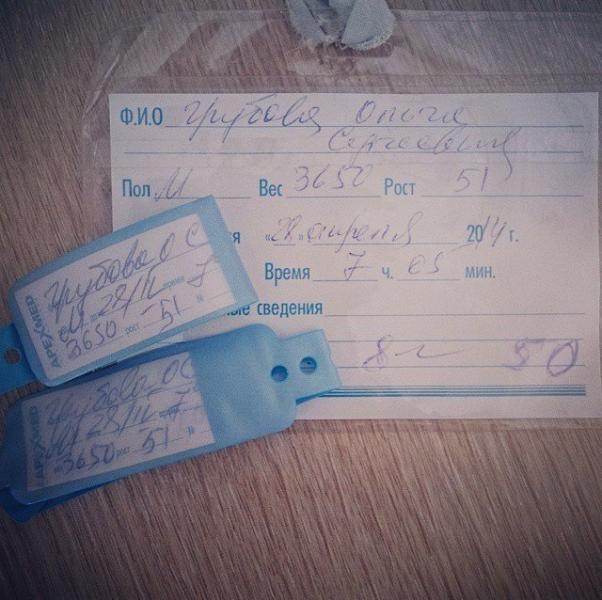 Ф.И.О Грубова Ольга
Сергеевна
Пол М Вес 3650 Рост 51
я «28» апреля 2014 г.
Время 7 ч. 05 мин.
ые сведения
8 г 50
Грубова О С
М 28/IV время 7
3650 рост 51 N
APEXMED
Грубова ОС
М 28/IV 7
3650 рост 51 N
APEXMED